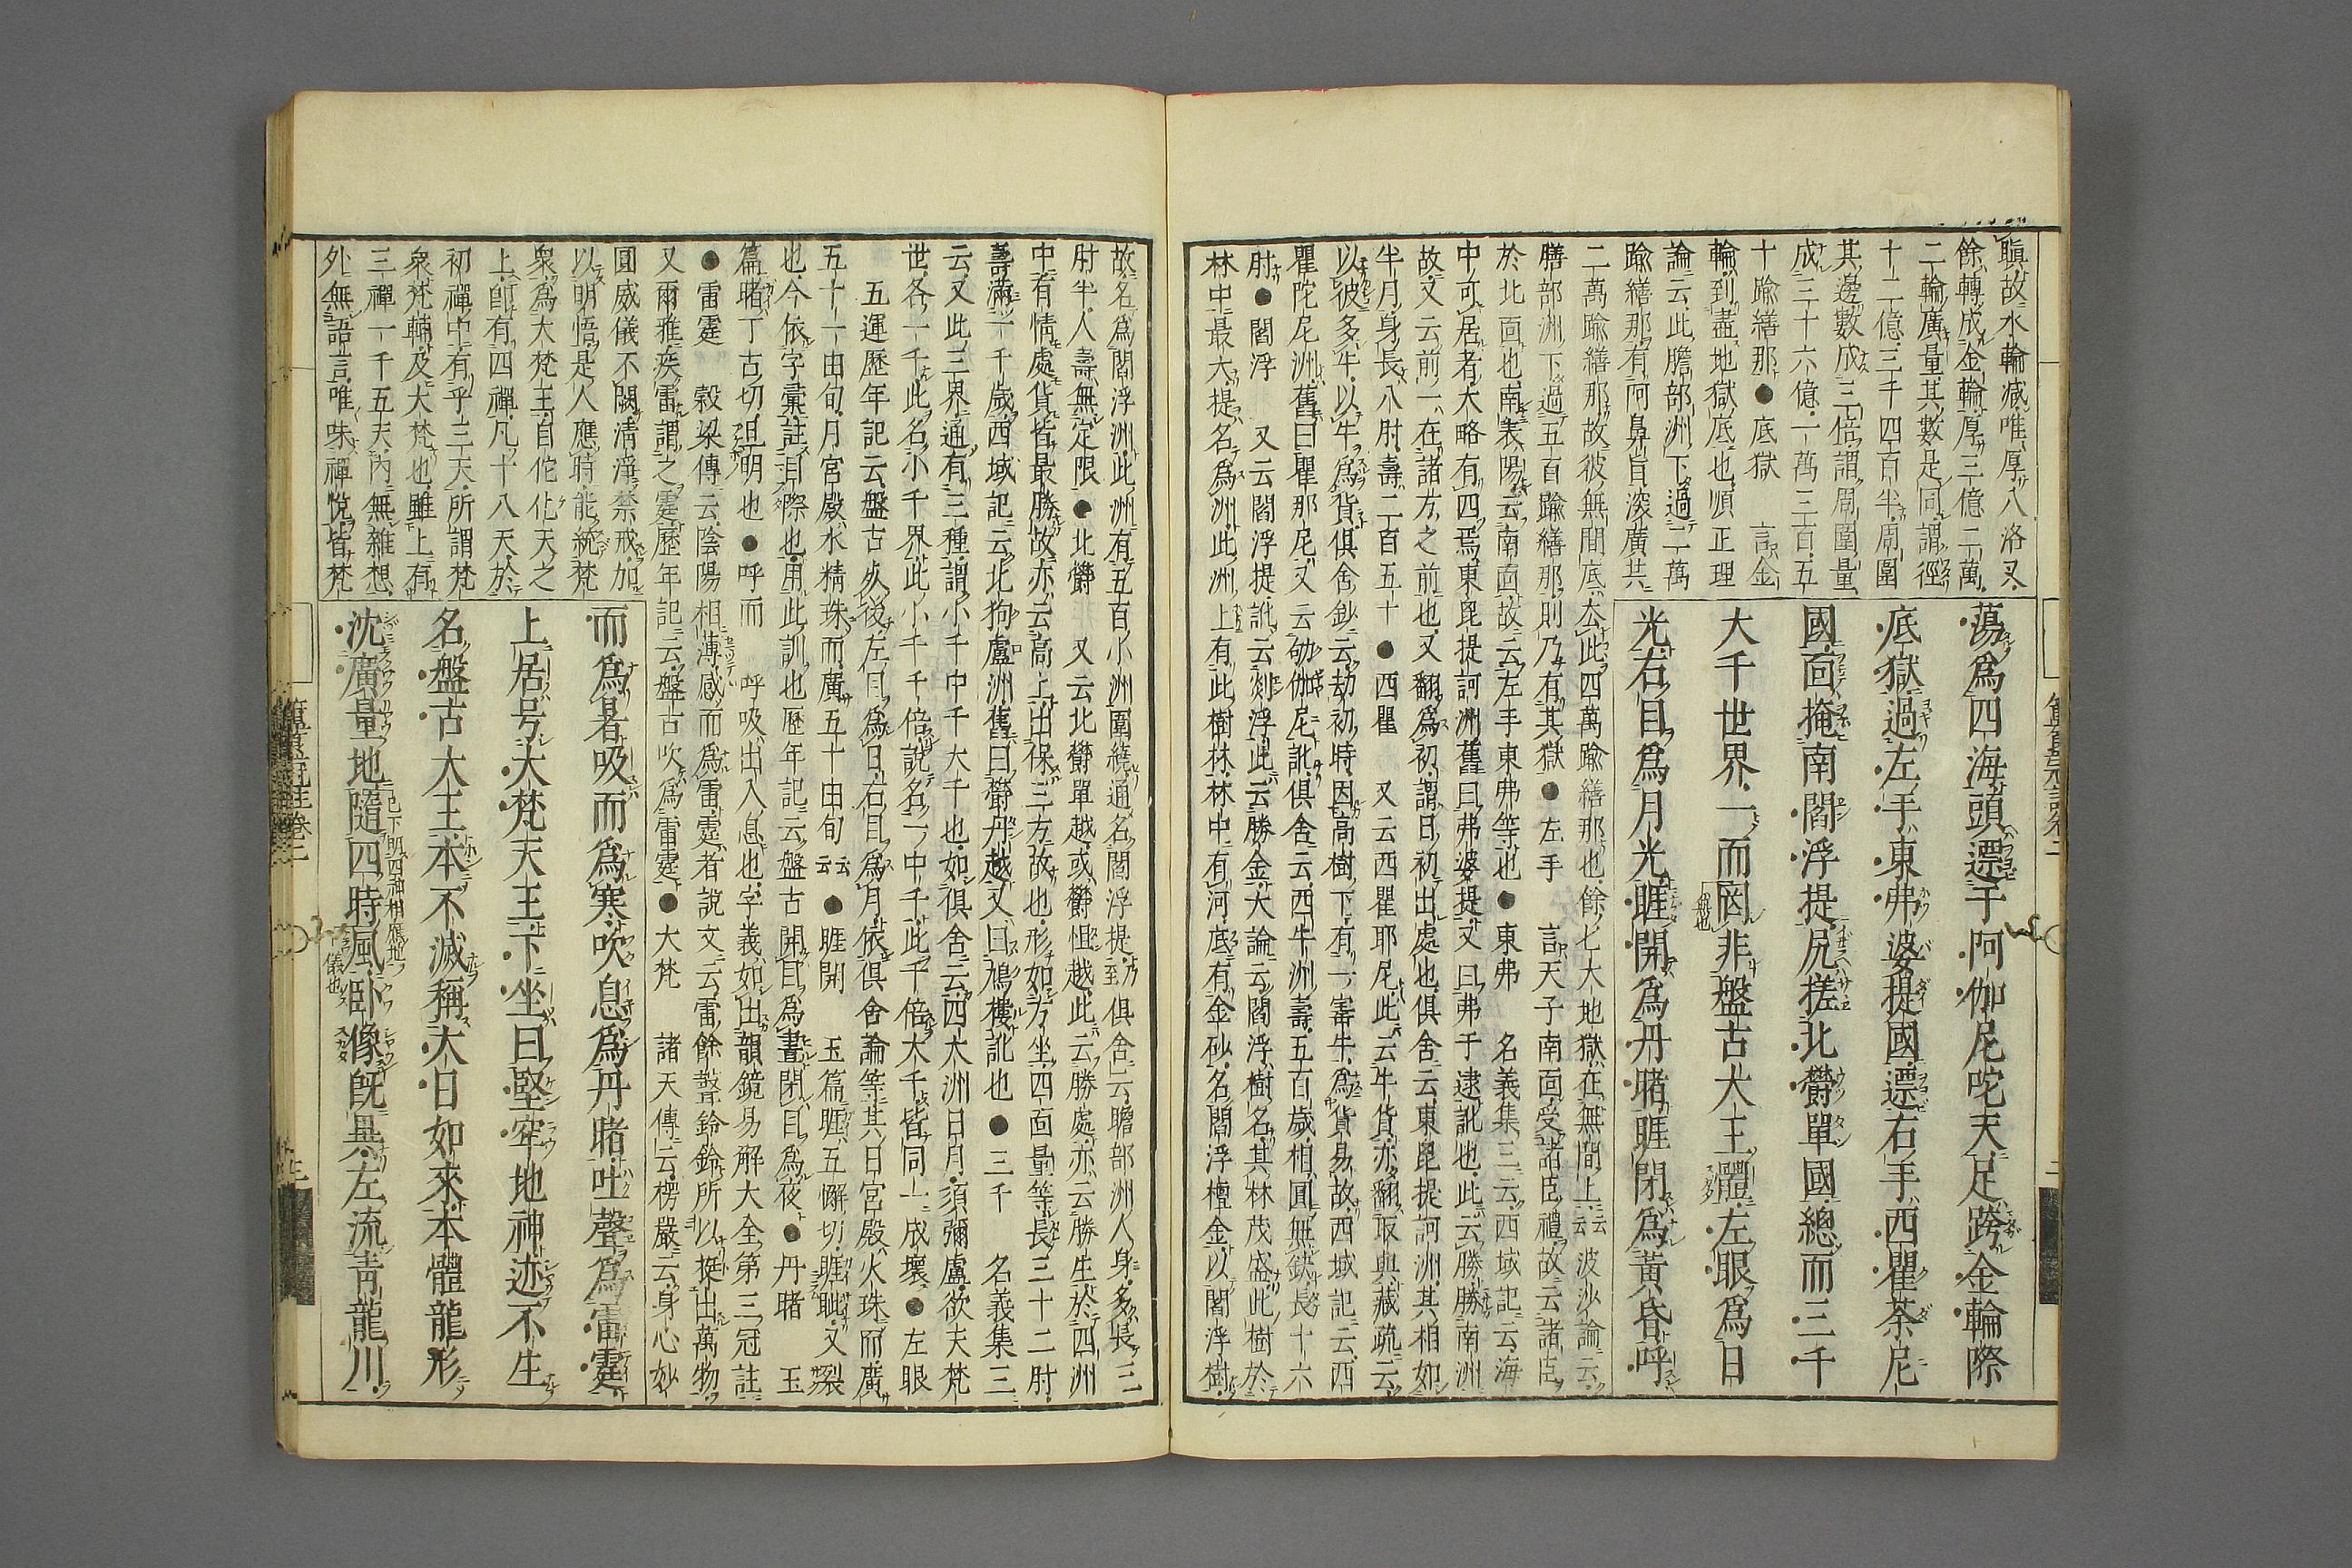 蕩爲四海頭漂于阿伽尼咤天足跨金輪際
底獄過左手東弗婆提國漂右手西瞿荼尼
國面掩南閻浮提尻搓北欝單國總而三千
大千世界一而罔非盤古大王體左眼爲日
光右目爲月光睚開爲丹睹睚閉爲黃昏呼
瞋故水輪減唯厚八洛叉
餘轉成金輪厚三億二萬
二輪廣量其數是同謂徑
十二億三千四百半周圍
其邊數成三倍謂周圍量
成三十六億一萬三百五
十踰繕那●底獄　言金
輪到盡地獄底也順正理
論云此贍部洲下過二萬
踰繕那有阿鼻旨深廣共
二萬踰繕那故彼無間底去此四萬踰繕那也餘七大地獄在無間上云云波沙論云
膳部洲下過五百踰繕那則乃有其獄●左手　言天子南面受諸臣禮故云諸臣
於北面也南表陽云南面故云左手東弗等也●東弗　名義集三云西域記云海
中可居者大略有四焉東毘提訶洲舊曰弗婆提又曰弗于逮訛也此云勝勝南洲
故又云前一在諸方之前也又翻爲初謂日初出處也俱舍云東毘提訶洲其相如
半月身長八肘壽二百五十●西瞿　又云西瞿耶尼此云牛貨亦翻取與藏疏云
以彼多牛以牛爲貨俱舍鈔云劫初時因高樹下有一寶牛爲貨易故西域記云西
瞿陀尼洲舊曰瞿那尼又云劬伽尼訛俱舍云西牛洲壽五百歲相圓無缺長十六
肘●閻浮　又云閻浮提訛云剡浮此云勝金大論云閻浮樹名其林茂盛此樹於
林中最大提名爲洲此洲上有此樹林林中有河底有金砂名閻浮檀金以閻浮樹
故名爲閻浮洲此洲有五百小洲圍繞通名閻浮提至乃俱舍云贍部洲人身多長三
肘半人壽無定限●北欝　又云北欝單越或欝怛越此云勝處亦云勝生於四洲
中有情處貨皆最勝故亦云高上出保三方故也形如方坐四面量等長三十二肘
壽滿一千歲西域記云北狗盧洲舊曰欝丹越又曰鳩樓訛也●三千　名義集三
云又此三界通有三種謂小千中千大千也如俱舍云四大洲日月須彌盧欲天梵
世各一千此名小千界此小千千倍說名一中千此千倍大千皆同一成壞●左眼
五運歷年記云盤古死後左目爲日右目爲月依俱舍論等其日宮殿火珠而廣
五十一由旬月宮殿水精珠而廣五十由旬云云●睚開　玉篇睚五懈切睚眦又裂
也今依字彙註目際也用此訓也歷年記云盤古開目爲晝閉目爲夜●丹睹　玉
篇睹丁古切旦明也●呼而　呼吸出入息也字義如出韻鏡易解大全第三冠註
●雷霆　穀梁傳云陰陽相薄感而爲雷霆者說文云雷餘聲鈴鈴所以挺出萬物
又爾雅疾雷謂之霆歷年記云盤古吹爲雷霆●大梵　諸天傳云楞嚴云身心妙
圓威儀不闕清淨禁戒加
以明悟是人應時能統梵
衆爲大梵王自佗化天之
上卽有四禪凡十八天於
初禪中有乎三天所謂梵
衆梵輔及大梵也雖上有
三禪一千五天內無雜想
外無語言唯味禪悅皆梵
而爲暑吸而爲寒吹息爲丹睹吐聲爲雷霆
上居号大梵天王下坐曰堅牢地神迹不生
名盤古大王本不滅稱大日如來本體龍形
沈廣量地隨四時風卧像旣異左流靑龍川